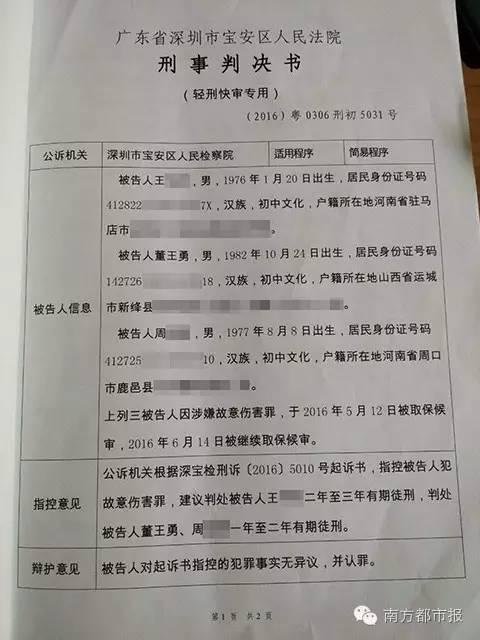 广东省深圳市宝安区人民法院
刑事判决书
（轻刑快审专用）
（2016）粤0306刑初5031号
公诉机关 深圳市宝安区人民检察院 适用程序 简易程序
被告人信息
被告人王，男，1976年1月20日出生，居民身份证号码
412822 7X，汉族，初中文化，户籍所在地河南省驻马
店市 。
被告人董王勇，男，1982年10月24日出生，居民身份证号码
142726 18，汉族，初中文化，户籍所在地山西省运城
市新绛县 。
被告人周，男，1977年8月8日出生，居民身份证号码
412725 10，汉族，初中文化，户籍所在地河南省周口
市鹿邑县 。
上列三被告人因涉嫌故意伤害罪，于2016年5月12日被取保候
审，2016年6月14日被继续取保候审。
指控意见
公诉机关根据深宝检刑诉〔2016〕5010号起诉书，指控被告人犯
故意伤害罪，建议判处被告人王 二年至三年有期徒刑，判处
被告人董王勇、周 一年至二年有期徒刑。
辩护意见 被告人对起诉书指控的犯罪事实无异议，并认罪。
第1页 共2页
南方都市报